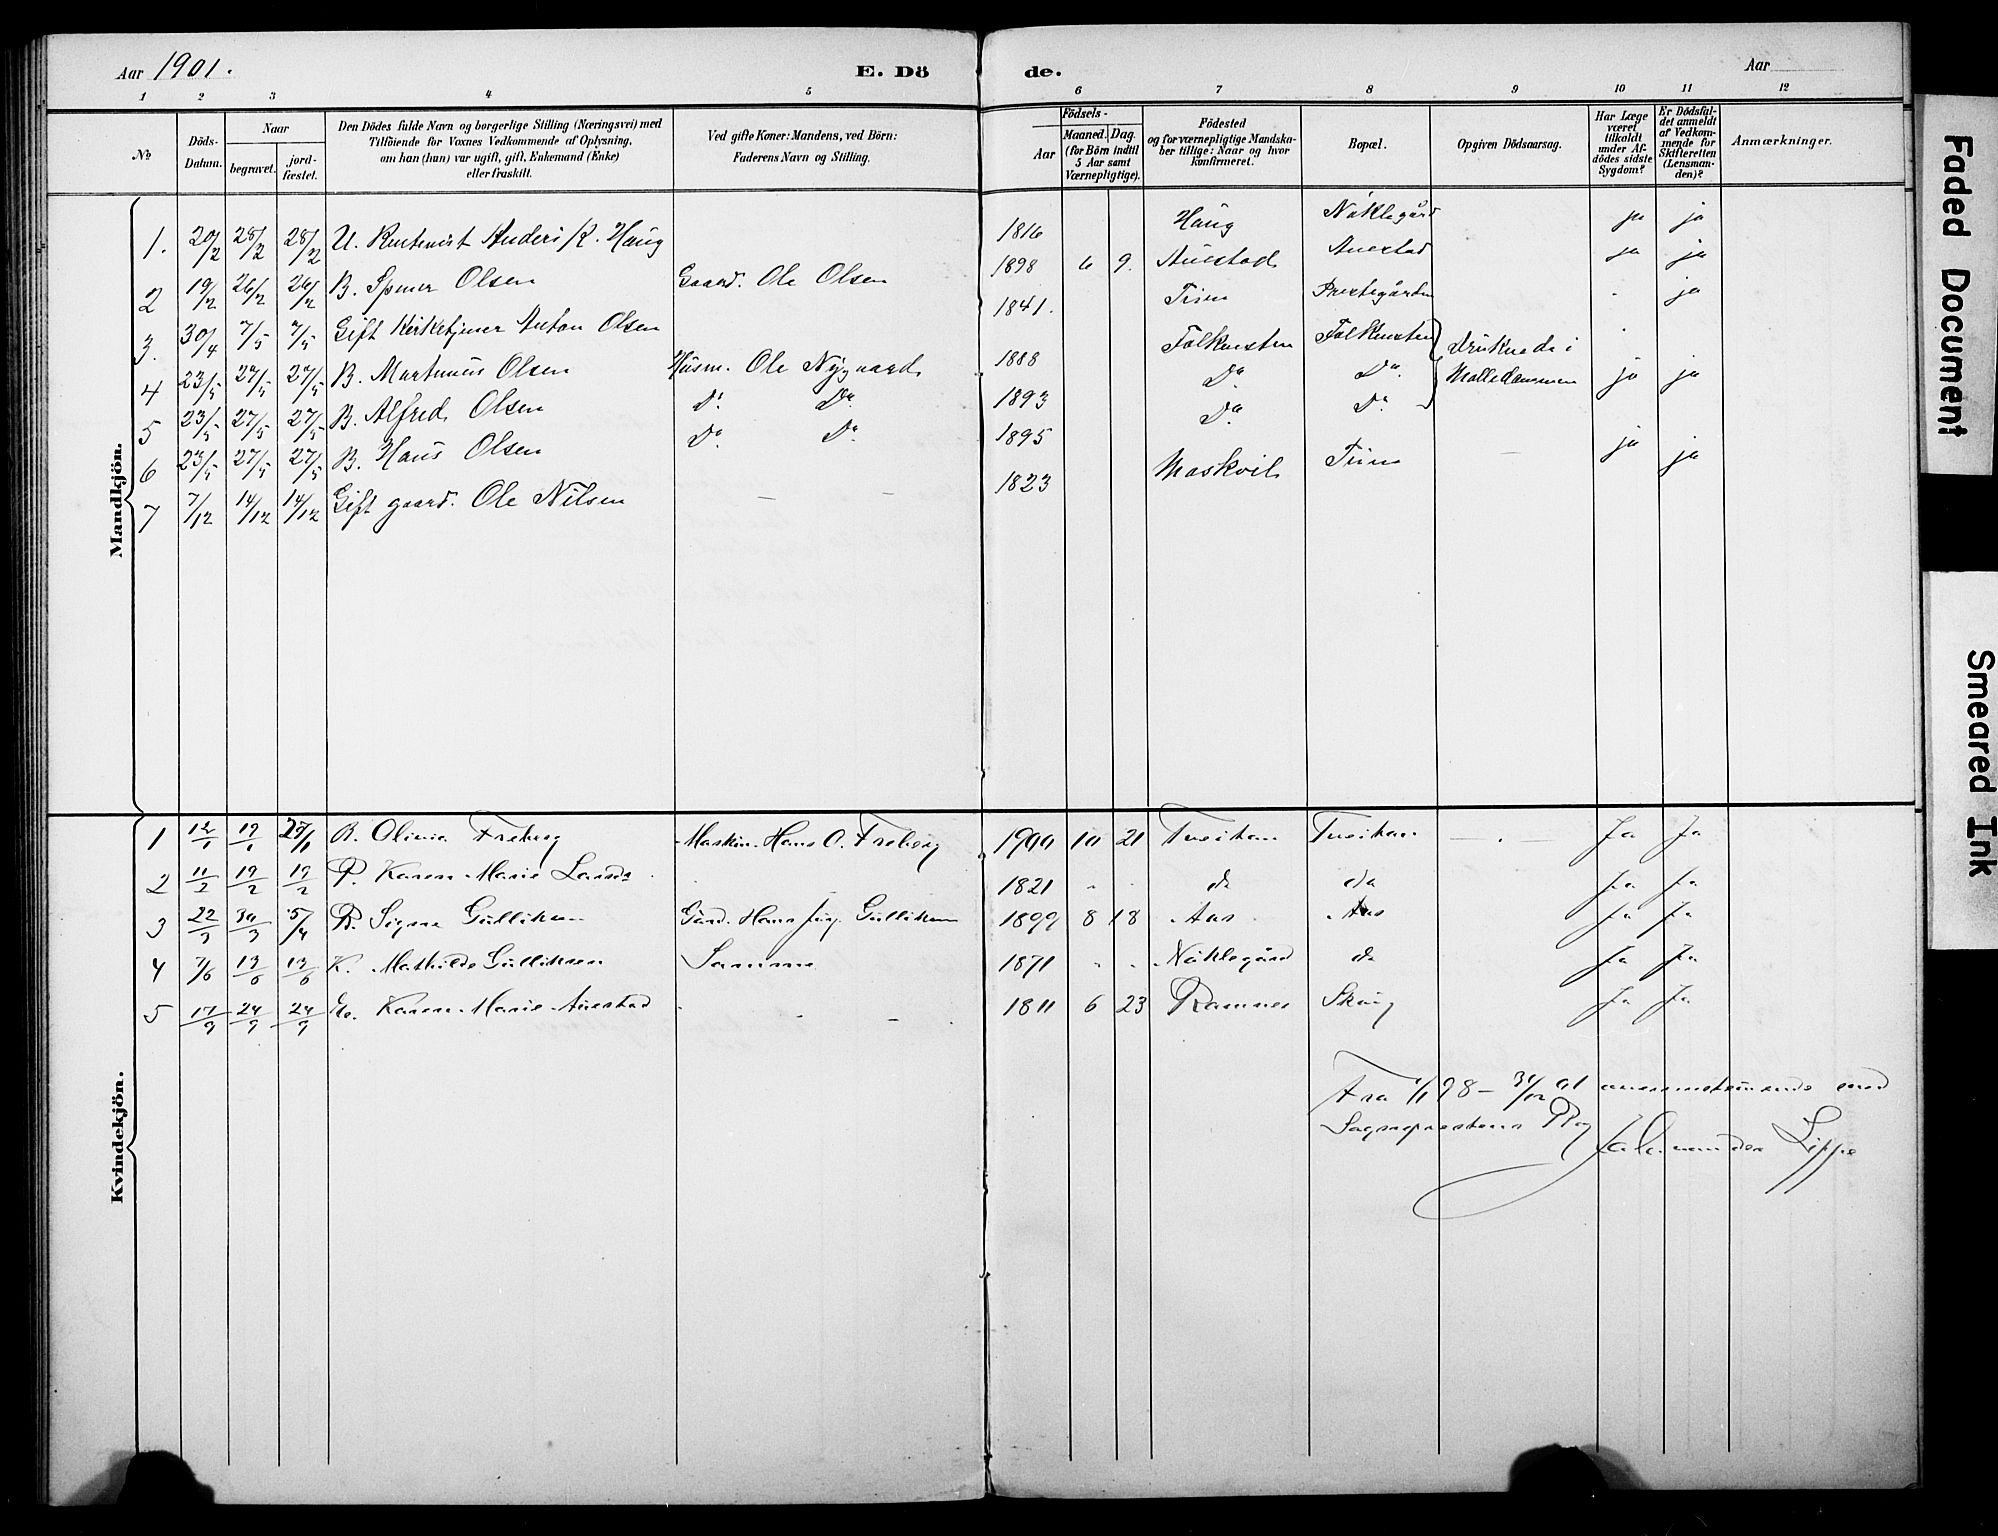 Aar 1901. E. Dö de. Aar
1 2 3 4 5 6 7 8 9 10 11 12
№
Döds-Datum.
Naar
begravet.
jord-fæstet.
Den Dödes fulde Navn og borgerlige Stilling (Næringsvei) med
Tilföiende for Voxnes Vedkommende af Oplysning,
om han (hun) var ugift, gift, Enkemand (Enke)
eller fraskilt.
Ved gifte Koner: Mandens, ved Börn:
Faderens Navn og Stilling.
Födsels-
Aar
Maaned. Dag.
(for Börn indtil
5 Aar samt
Værnepligtige).
Födested
og for værnepligtige Mandska-
ber tillige: Naar og hvor
konfirmeret.
Bopæl.
Opgiven Dödsaarsag.
Har Læge
været
tilkaldt
under Af-
dödes sidste
Sygdom?
Er Dödsfal-
det anmeldt
af Vedkom-
mende for
Skifteretten
(Lensman-
den)?
Anmærkninger.
Mandkjön.
1. 20/2 28/2 28/2 U. Anders K. Haug 1816 Haug Nöklegård ja ja
2 19/2 26/2 26/2 B. Olsen Gaard. Ole Olsen 1898 6 9. Auestad Auestad ja ja
3. 30/4 7/5 7/5 Gift Kirketjener Anton Olsen 1841. Prestegården . ja
4 23/5 27/5 27/5 B. Martinius Olsen Husm. Ole Nygaard 1888 Falkensten Falkensten Druknede i .
5 23/5 27/5 27/5 B. Alfred Olsen Do. Do. 1893 Do Do. Mölledammen ja ja
6 23/5 27/5 27/5 B. Hans Olsen Do. Do. 1895 Do Do.
7 7/12 14/12 14/12 Gift gaard. Ole Nilsen — — 1823 — ja ja
Kvindekjön.
1 12/1 19/1 B. Olivia Freberg Maskin. Hans O. Freberg 1900 10 21 Tveitan Tveitan — . — Ja Ja
2 11/2 19/2 19/2 Karen Marie 1821 - - do do Ja Ja
3 22/3 30/3 5/4 B. Signe Gulliksen Gård. Hans Gulliksen 1899 8 18 Aas Aas Ja Ja
4 7/6 13/6 13/6 K. Mathilde Gulliksen Samme 1871 - - Nöklegård do Ja Ja
5 17/9 24/9 24/9 E. Karen Marie Auestad - - - 1811 6 23 Ramnes Skaug Ja Ja
Fra 1/1 98 — 31/12 01 overensstemmende med
Sogneprestens Bog
Lippe
Faded Document
Smeared Ink